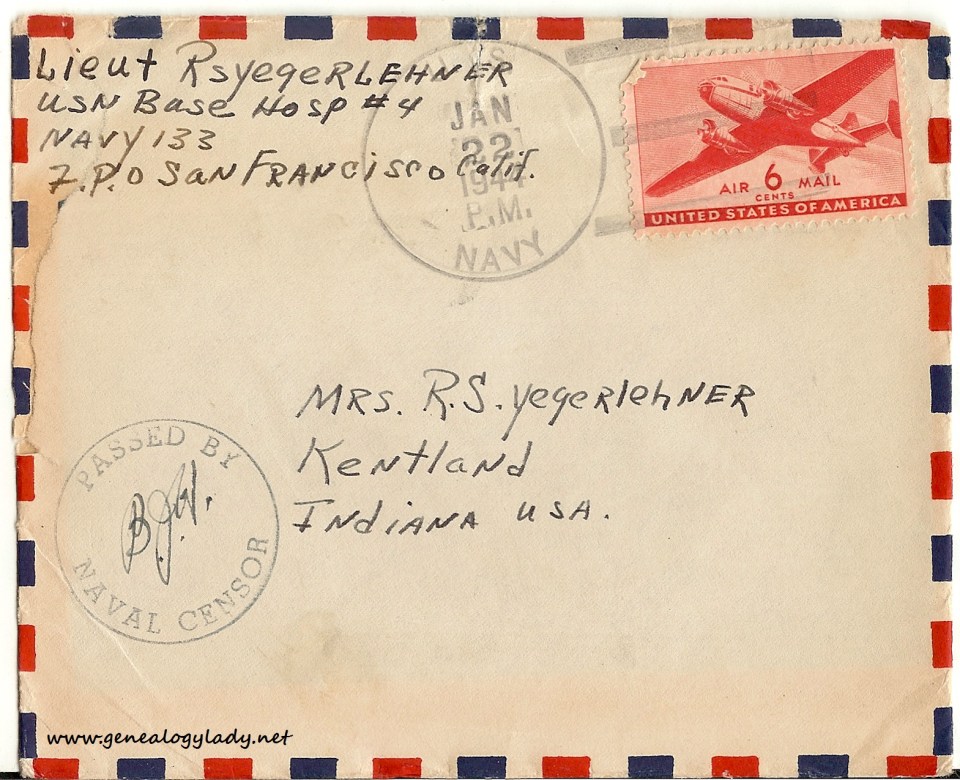 Lieut RSYegerLEHNER
USN Base Hosp #4
NAVY 133
F.P.O San FRANCisco Calif.
JAN
22
1944
P.M.
NAVY
AIR 6 MAIL
CENTS
UNITED STATES OF AMERICA
MRS. R.S. YegeRlehNER
Kentland
INdiANA USA.
PASSED BY
B.J.W.
NAVAL CENSOR
www.genealogylady.net